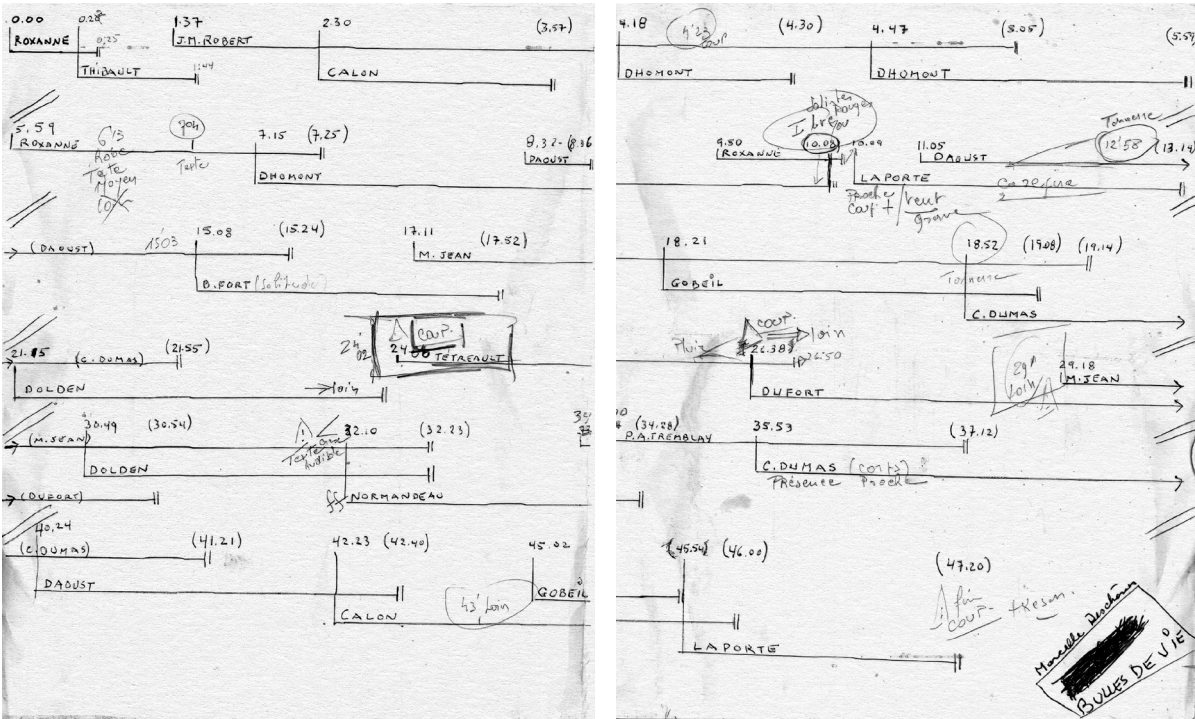 0.00 0.28 1.37 2.30 (3.57)
ROXANNE 0:25 J.M. ROBERT
THIBAULT 1:44 CALON
5.59 6'13 704 7.15 (7.25) 8.32 - (8.36
ROXANNE Robe Texte DAOUST
Texte
Moyen
Loin
DHOMONT
(DAOUST) 15'03 15.08 (15.24) 17.11 (17.52)
M. JEAN
B. FORT (Solitude)
21.15 (C. DUMAS) (21.55) 24'02 COUP.
TÉTREAULT
DOLDEN loin
(M. JEAN) 30.49 (30.54) 32.10 (32.23)
DOLDEN Texte
audible
(DUFORT) ff NORMANDEAU
40.24
(C. DUMAS) (41.21) 42.23 (42.40) 45.02
DAOUST GOBEIL
CALON 43' loin
4.18 4'23 COUP (4.30) 4.47 (5.05) (5.59
DHOMONT DHOMONT
Rouges
9.50 10.08 10.09 11.05 Tonnerre 12'58 (13.14)
ROXANNE DAOUST
LAPORTE
Proche
Coup + / Vent
grave
18.21 18.52 (19.08) (19.14)
GOBEIL Tonnerre
C. DUMAS
COUP. loin
Pluie 26.38 26.50
DUFORT 29' loin 29.18
M. JEAN
(34.28) 35.53 (37.12)
P.A. TREMBLAY
C. DUMAS (corps)
Présence Proche
(45.54) (46.00) (47.20)
fin
COUP. + Réson.
LAPORTE
Marcelle Deschênes
BULLES DE VIE